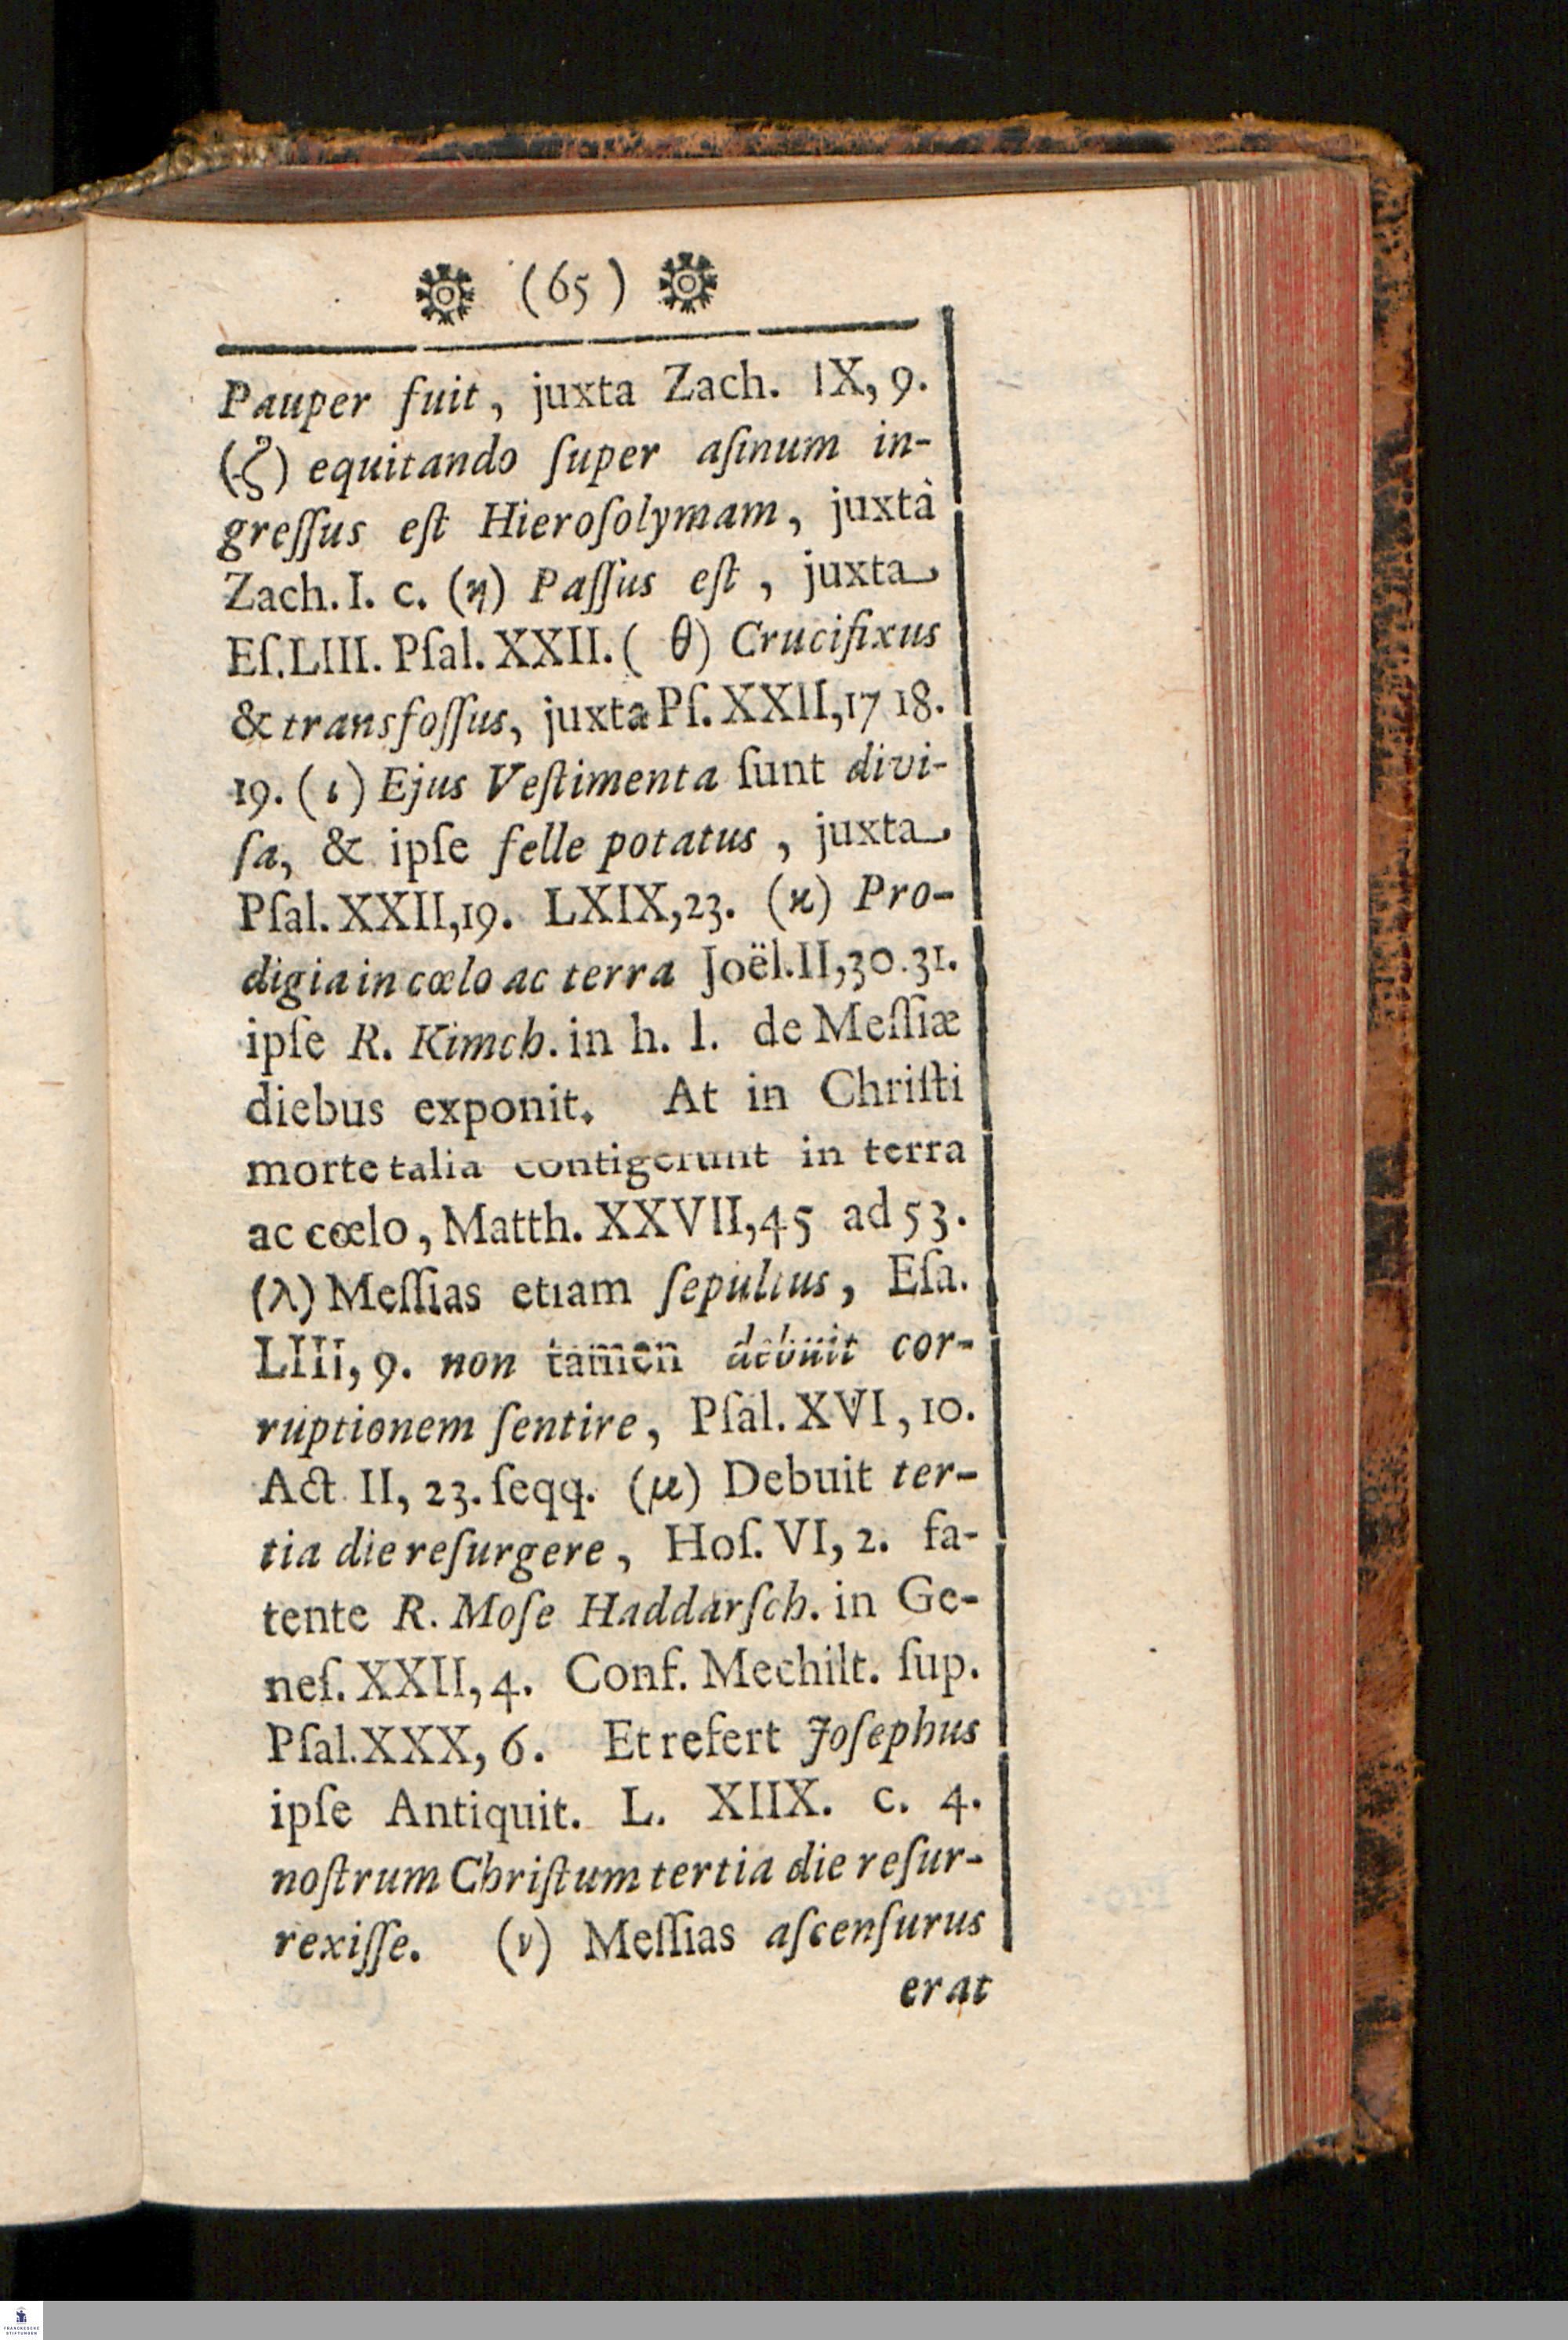 (65)
Pauper fuit, juxta Zach. IX, 9.
(ζ) equitando ſuper aſinum in-
greſſus eſt Hieroſolymam, juxtâ
Zach. I. c. (η) Paſſus eſt, juxta
Eſ. LIII. Pſal. XXII. (θ) Crucifixus
& transfoſſus, juxta Pſ. XXII, 17 18.
19. (ι) Ejus Veſtimenta ſunt divi-
ſa, & ipſe felle potatus, juxta
Pſal. XXII, 19. LXIX, 23. (κ) Pro-
digia in cœlo ac terra Joël. II, 30. 31.
ipſe R. Kimch. in h. l. de Meſſiæ
diebus exponit. At in Chriſti
morte talia contigerunt in terra
ac cœlo, Matth. XXVII, 45 ad 53.
(λ) Meſſias etiam ſepultus, Eſa.
LIII, 9. non tamen debuit cor-
ruptionem ſentire, Pſal. XVI, 10.
Act II, 23. ſeqq. (μ) Debuit ter-
tia die reſurgere, Hoſ. VI, 2. fa-
tente R. Moſe Haddarſch. in Ge-
neſ. XXII, 4. Conf. Mechilt. ſup.
Pſal. XXX, 6. Et refert Joſephus
ipſe Antiquit. L. XIIX. c. 4.
noſtrum Chriſtum tertia die reſur-
rexiſſe. (ν) Meſſias aſcenſurus
erat
FRANCKESCHE
STIFTUNGEN